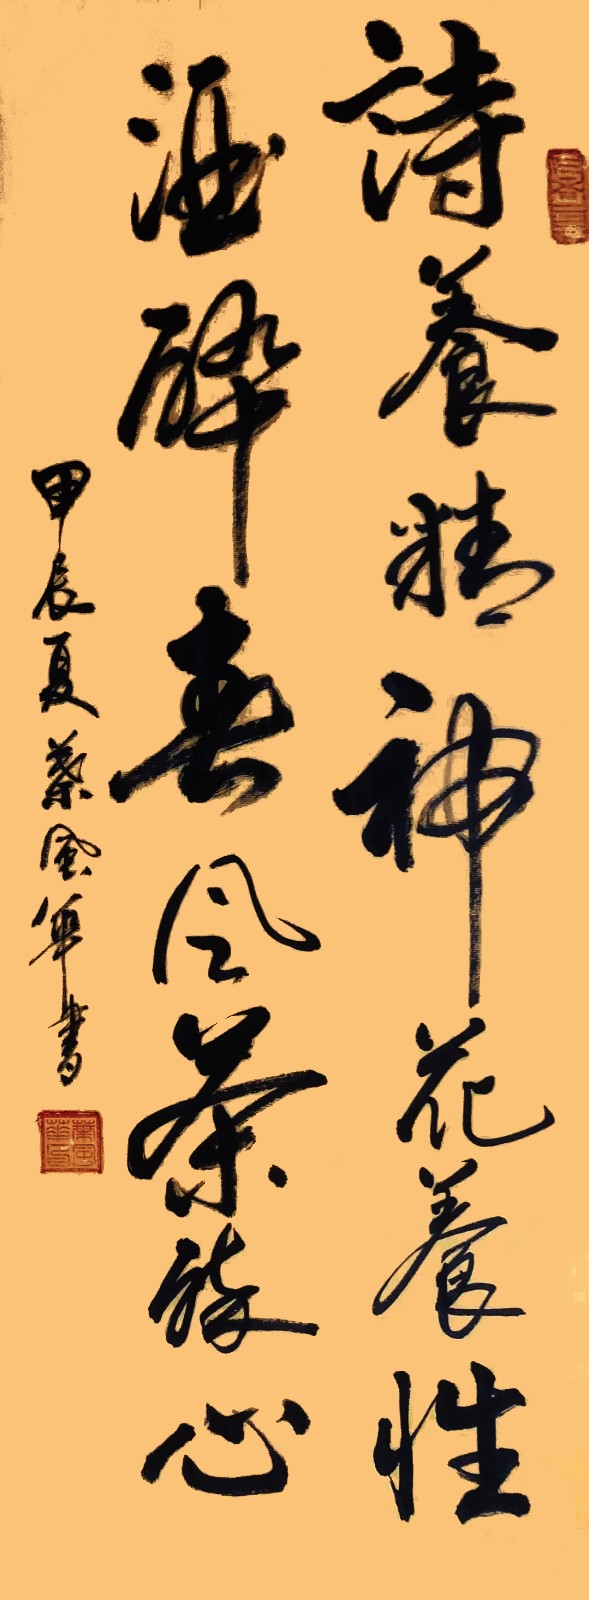 詩養精神花養性
酒醉春风茶醉心
甲辰夏葉風華書